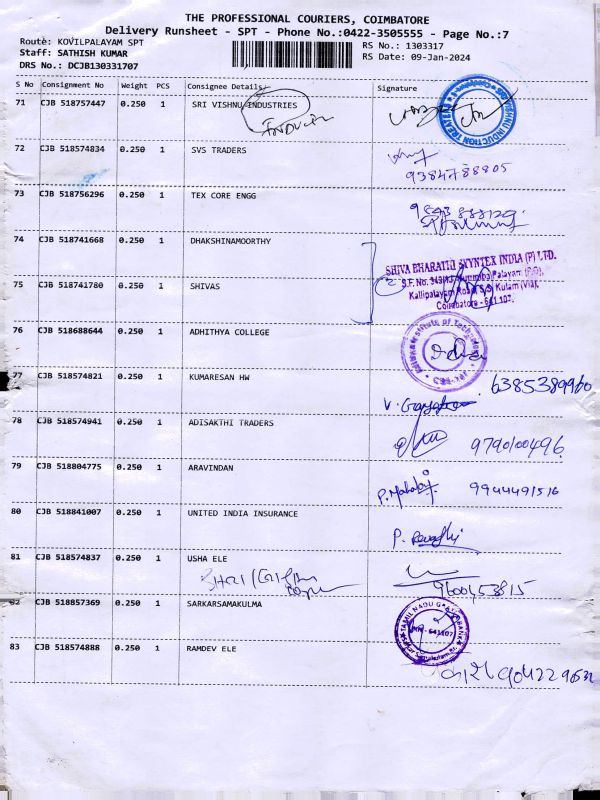 THE PROFESSIONAL COURIERS, COIMBATORE
Delivery Runsheet - SPT - Phone No.:0422-3505555 - Page No.:7
Route: KOVILPALAYAM SPT
RS No.: 1303317
Staff: SATHISH KUMAR
RS Date: 09-Jan-2024
DRS No.: DCJB130331707
S No Consignment No Weight PCS Consignee Details Signature
71 CJB 518757447 0.250 1 SRI VISHNU INDUSTRIES
72 CJB 518574834 0.250 1 SVS TRADERS
9384788805
73 CJB 518756296 0.250 1 TEX CORE ENGG
74 CJB 518741668 0.250 1 DHAKSHINAMOORTHY
SHIVA BHARATHI SYNTEX INDIA (P) LTD.
75 CJB 518741780 0.250 1 SHIVAS
Coimbatore - 641 107.
76 CJB 518688644 0.250 1 ADHITHYA COLLEGE
77 CJB 518574821 0.250 1 KUMARESAN HW
6385389960
78 CJB 518574941 0.250 1 ADISAKTHI TRADERS
9790100496
79 CJB 518804775 0.250 1 ARAVINDAN
P. 9944491516
80 CJB 518841007 0.250 1 UNITED INDIA INSURANCE
P. Revathi
81 CJB 518574837 0.250 1 USHA ELE
9600453815
82 CJB 518857369 0.250 1 SARKARSAMAKULMA
83 CJB 518574888 0.250 1 RAMDEV ELE